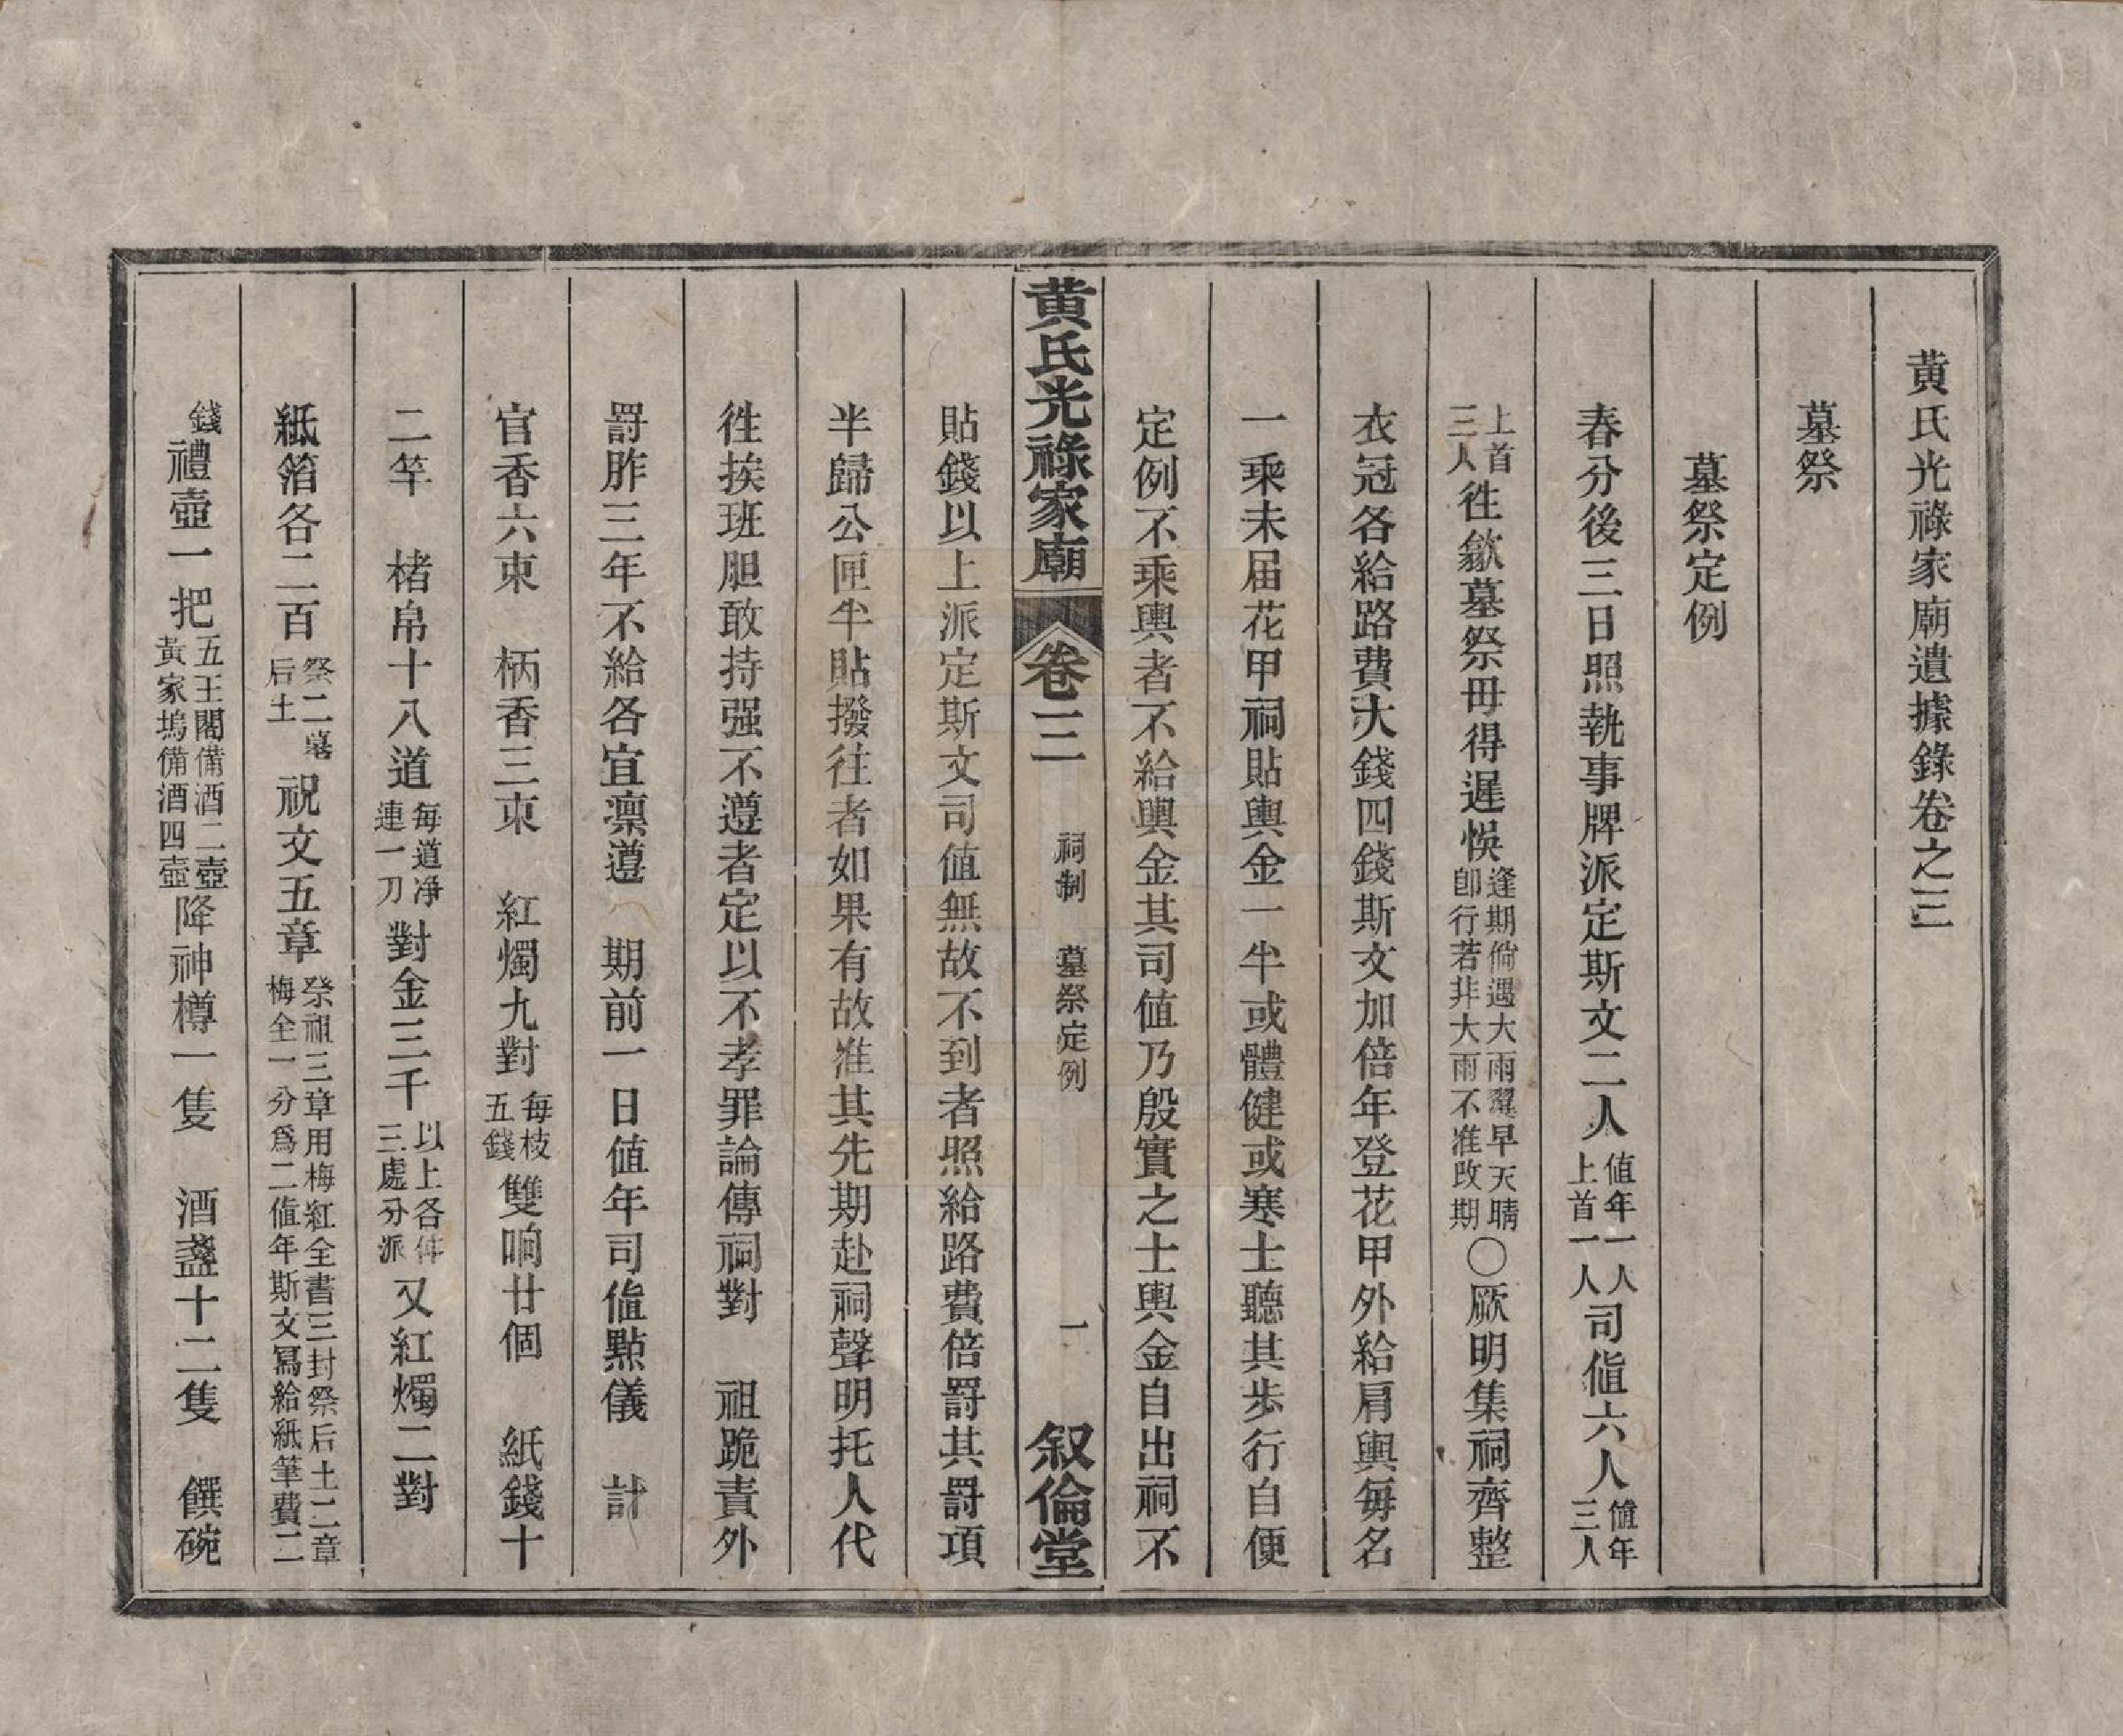 黄氏光祿家廟遺據錄卷之三
墓祭
墓祭定例
春分後三日照執事牌派定斯文二人值年一人上首一人司値六人値年三人
上首三人徃歙墓祭毋得遲悞逢期倘遇大雨翼早天晴卽行若非大雨不准改期〇厥明集祠齊整
衣冠各給路費大錢四錢斯文加倍年登花甲外給肩輿每名
一乘未届花甲祠貼輿金一半或體健或寒士聽其步行自便
定例不乘輿者不給輿金其司值乃殷實之士輿金自出祠不
黄氏光祿家廟 卷三 祠制 墓祭定例 一 叙倫堂
貼錢以上派定斯文司值無故不到者照給路費倍罸其罸項
半歸公匣半貼撥往者如果有故准其先期赴祠聲明托人代
徃挨班胆敢持强不遵者定以不孝罪論傳祠對 祖跪責外
罸胙三年不給各宜凛遵 期前一日值年司值㸃儀 計
官香六束 柄香三束 紅燭九對每枝五錢雙响廿個 紙錢十
二竿 楮帛十八道每道凈連一刀對金三千以上各件三處分派又紅燭二對
紙箔各二百祭二墓后土祝文五章祭祖三章用梅紅全書三封祭后土二章梅全一分爲二值年斯文冩給紙筆費二
錢禮壺一把五王閣備酒二壺黃家塢備酒四壺降神樽一隻 酒盞十二隻 饌碗